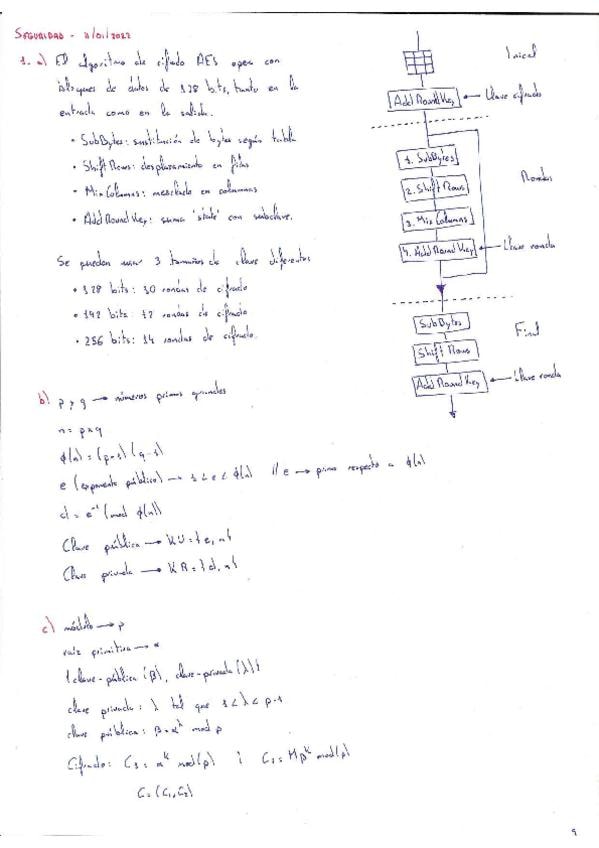 SEGURIDAD - 2/01/2022
1. a) El algoritmo de cifrado AES opera con
bloques de datos de 128 bits, tanto en la
entrada como en la salida.
• SubBytes: sustitución de bytes según tabla
• ShiftRows: desplazamiento en filas
• MixColumns: mezclado en columnas
• AddRoundKey: suma 'state' con subclave.
Se pueden usar 3 tamaños de clave diferentes
• 128 bits: 10 rondas de cifrado
• 192 bits: 12 rondas de cifrado
• 256 bits: 14 rondas de cifrado.
Inicial
AddRoundKey ← Llave cifrado
1. SubBytes
Rondas
2. ShiftRows
3. MixColumns
4. AddRoundKey ← Llave ronda
SubBytes
Final
Shift Rows
AddRoundKey ← Llave ronda
b) p y q → números primos grandes
n = p × q
φ(n) = (p-1)(q-1)
e (exponente público) → 1 < e < φ(n) // e → primo respecto a φ(n)
d = e⁻¹ (mod φ(n))
Clave pública → KU = {e, n}
Clave privada → KR = {d, n}
c) módulo → p
raíz primitiva → α
{clave-pública (β), clave-privada (λ)}
clave privada: λ tal que 1 < λ < p-1
clave pública: β = α^λ mod p
Cifrado: C₁ = α^k mod(p) ; C₂ = Mβ^k mod(p)
C = (C₁, C₂)